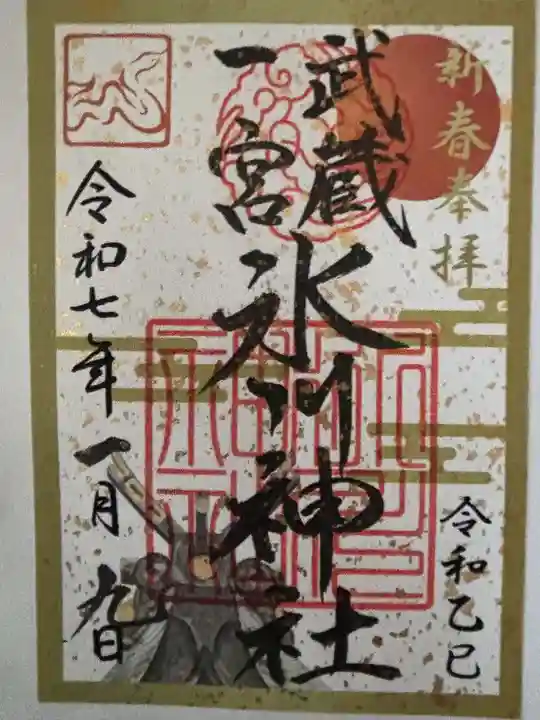 新春奉拝
令和乙巳
武蔵
一宮
氷川神社
令和七年一月九日